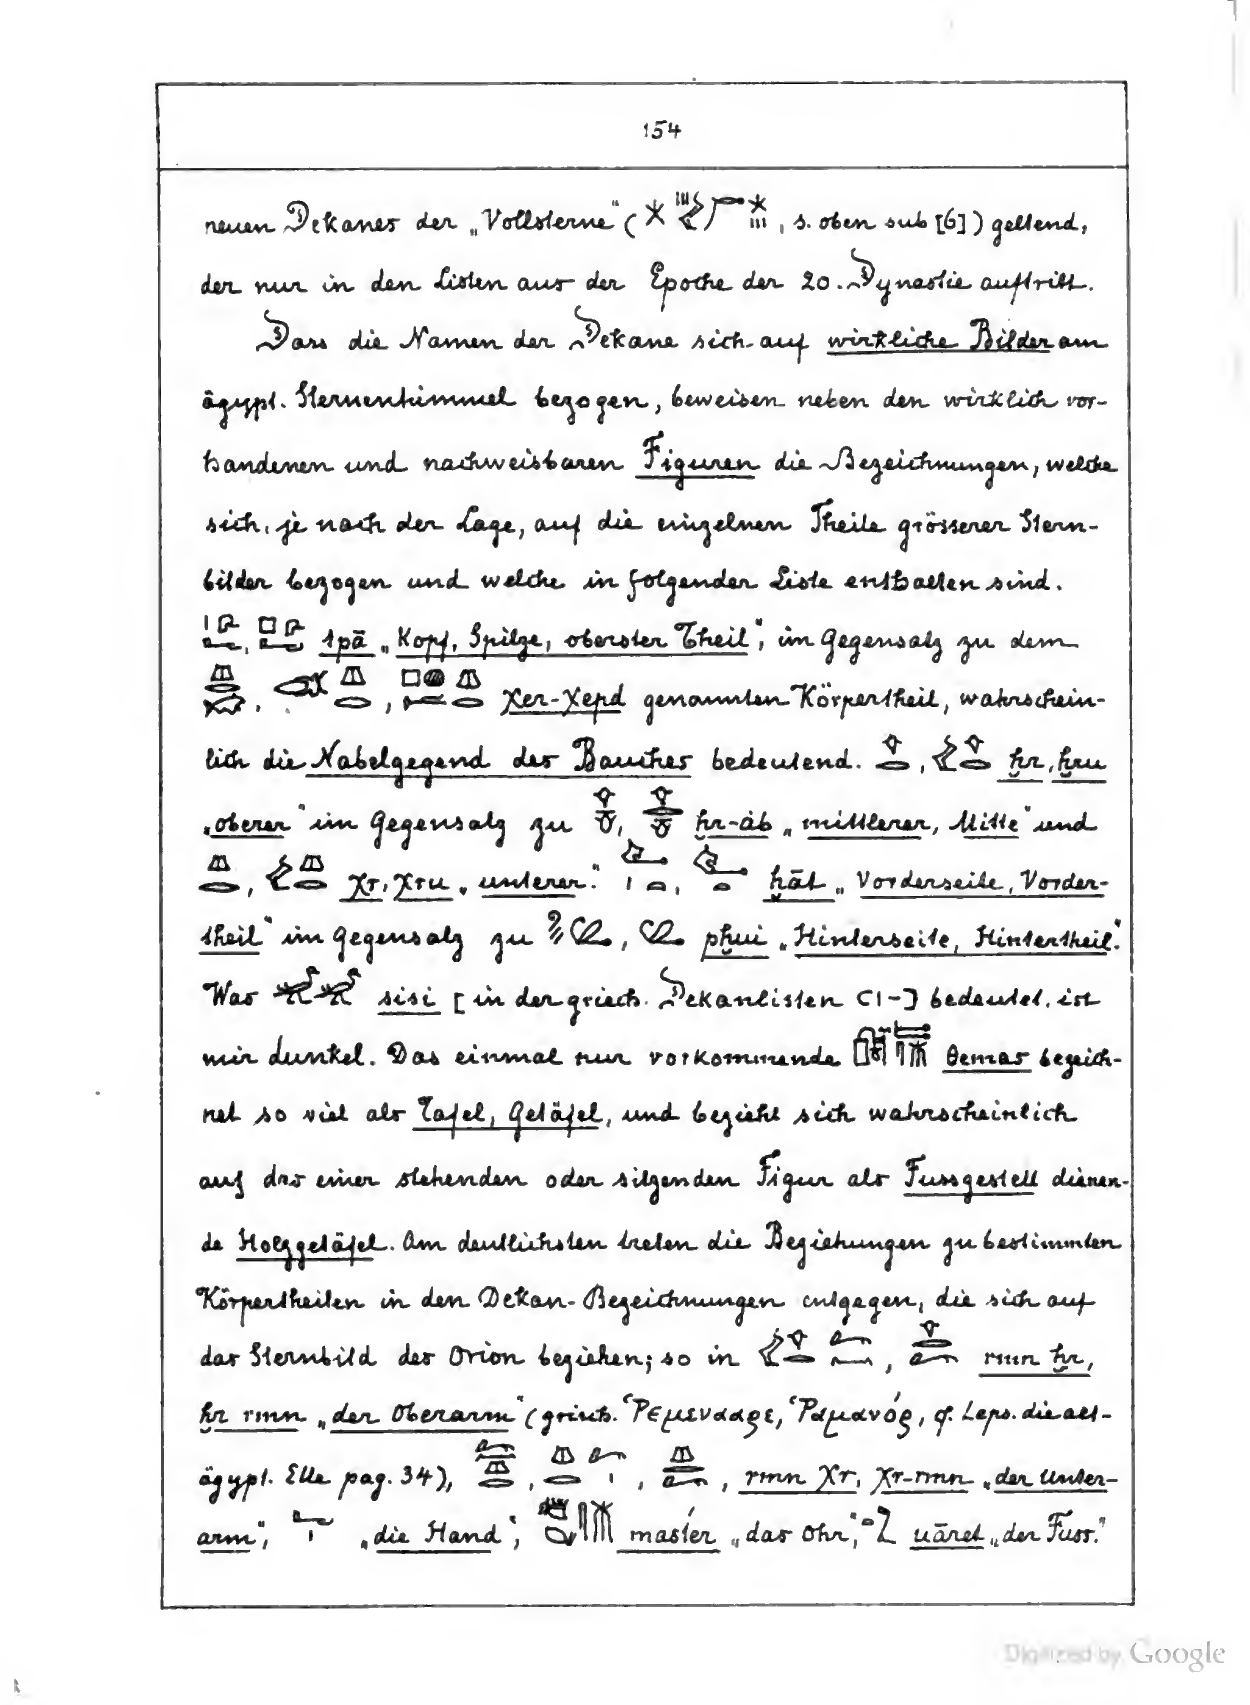 154
neuen Dekanes der „Vollsterne“ ( , s. oben sub [6] ) geltend,
der nur in den Listen aus der Epoche der 20. Dynastie auftritt.
Dass die Namen der Dekane sich auf wirkliche Bilder am
ägypt. Sternenhimmel bezogen, beweisen neben den wirklich vor-
handenen und nachweisbaren Figuren die Bezeichnungen, welche
sich, je nach der Lage, auf die einzelnen Theile grösserer Stern-
bilder bezogen und welche in folgender Liste enthalten sind.
, tpā „Kopf, Spitze, oberster Theil“, im Gegensatz zu dem
, , χer-χepd genannten Körpertheil, wahrschein-
lich die Nabelgegend des Bauches bedeutend. , ḥr, ḥru
„oberer“ im Gegensatz zu , ḥr-åb „mittlerer, Mitte“ und
, χr, χru „unterer.“ , ḥāt „Vorderseite, Vorder-
theil“ im Gegensatz zu , pḥui „Hinterseite, Hintertheil“.
Was sisi [in der griech. Dekanlisten CI-] bedeutet, ist
mir dunkel. Das einmal nur vorkommende θemas bezeich-
net so viel als Tafel, Getäfel, und bezieht sich wahrscheinlich
auf das einer stehenden oder sitzenden Figur als Fussgestell dienen-
de Holzgetäfel. Am deutlichsten treten die Beziehungen zu bestimmten
Körpertheilen in den Dekan-Bezeichnungen entgegen, die sich auf
das Sternbild des Orion beziehen; so in , rmn ḥr,
ḥr rmn „der Oberarm“ (griech. Ῥεμενααρε, Ῥαμανός, cf. Leps. die alt-
ägypt. Elle pag. 34), , , , rmn χr, χr-rmn „der Unter-
arm“, „die Hand“, masťer „das Ohr“, uāret „der Fuss.“
Digitized by Google